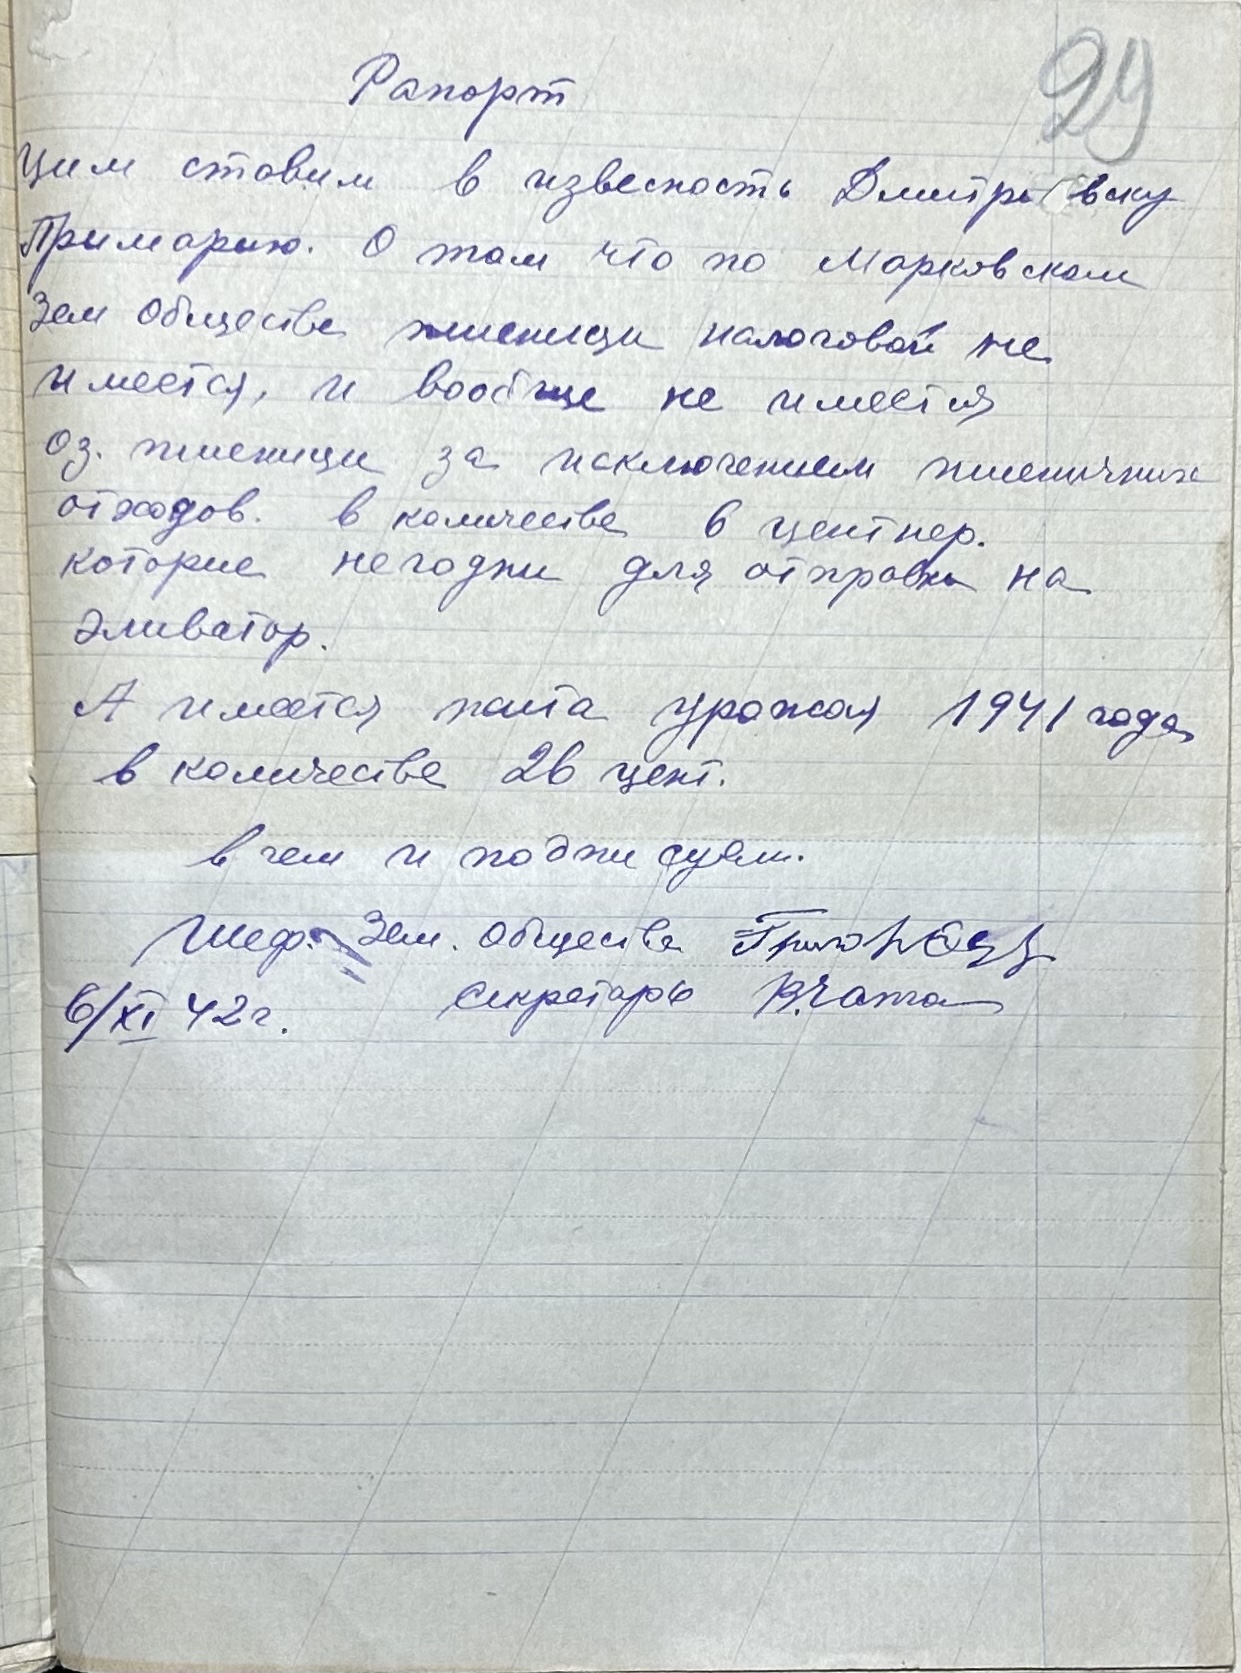 29
Рапорт
Цим ставим в извесность Дмитровску
Примарию. О том что по Марковском
Зем Обществе пшеници налоговой не
имеется, и вообще не имеется
Оз. пшеници за исключением пшеничних
отходов. в количестве 6 центнер.
которие негодни для отправки на
Эливатор.
А имеется жита урожая 1941 года
в количестве 26 цент.
в чем и подписуем.
Шеф. Зем. Общества
6/XI 42 г. Секретарь